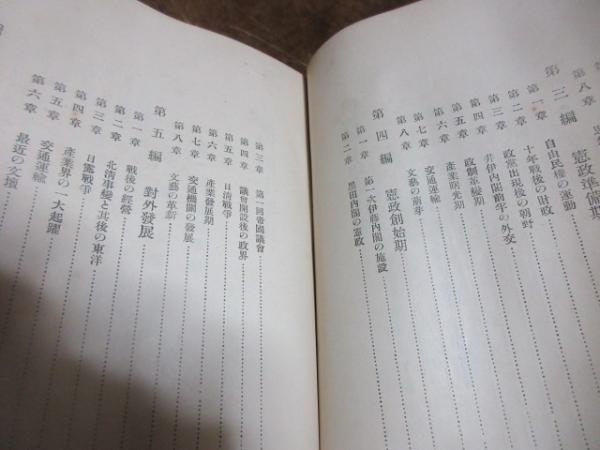 第八章
第三編 憲政準備期
第一章 自由民權の運動
第二章 十年戰後の財政
第三章 政黨出現後の朝野
第四章 井伊内閣前半の外交
第五章 政創革變期
第六章 產業朝光期
第七章 交通運輸
第八章 文藝の萠芽
第四編 憲政創始期
第一章 第一次伊藤内閣の施設
第二章 黑田内閣の憲政
第三章 第一回帝國議會
第四章 議會開設後の政界
第五章 日淸戰爭
第六章 產業發展期
第七章 交通機關の發展
第八章 文藝の革新
第五編 對外發展
第一章 戰後の經營
第二章 北淸事變と其後の東洋
第三章 日露戰爭
第四章 產業界の一大起躍
第五章 交通運輸
第六章 最近の文壇